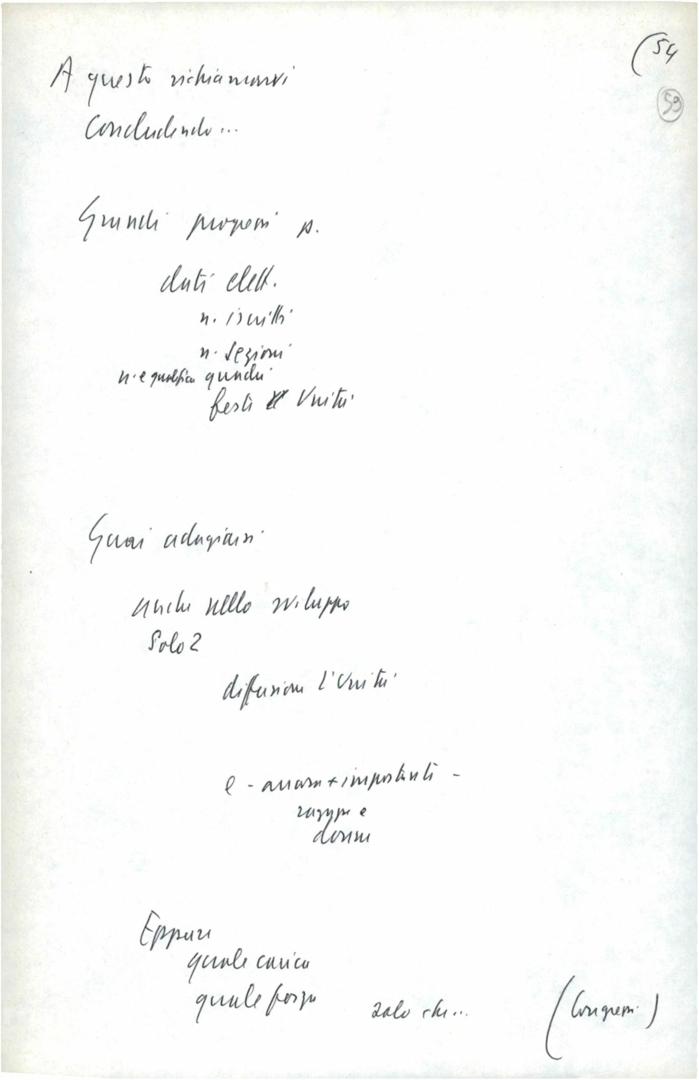 (54
59
A questo richiamarvi
Concludendo...
Grandi progressi p.
dati elett.
n. iscritti
n. sezioni
n. e qualifica quadri
festi Unità
Guai adagiarsi
anche nello sviluppo
Solo 2
diffusione l'Unità
e - ancora + importanti -
ragazze e
donne
Eppure
quale carica
quale forza
solo che...
(Congressi)